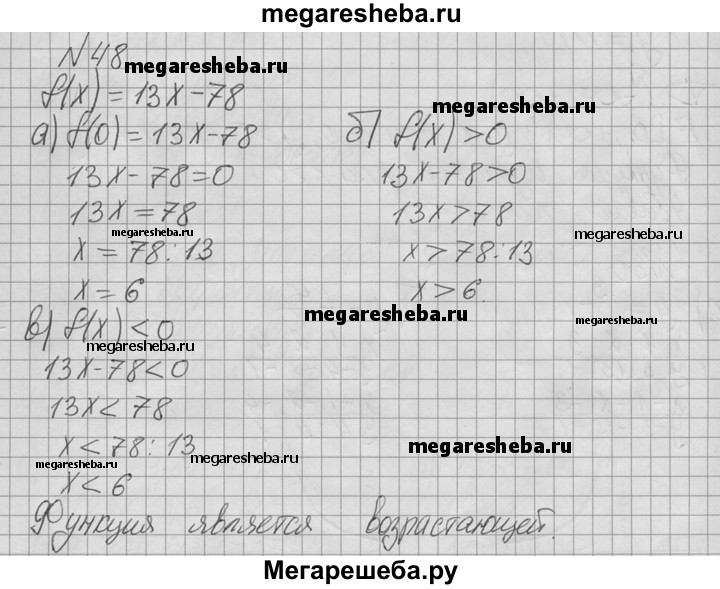 megaresheba.ru
№48
megaresheba.ru
f(x) = 13x - 78
megaresheba.ru
а) f(0) = 13x - 78
13x - 78 = 0
13x = 78
megaresheba.ru
x = 78 : 13
x = 6
б) f(x) > 0
13x - 78 > 0
13x > 78
megaresheba.ru
x > 78 : 13
x > 6
megaresheba.ru
megaresheba.ru
в) f(x) < 0
megaresheba.ru
13x - 78 < 0
13x < 78
x < 78 : 13
megaresheba.ru
megaresheba.ru
megaresheba.ru
x < 6
Функция является возрастающей.
Мегарешеба.ру